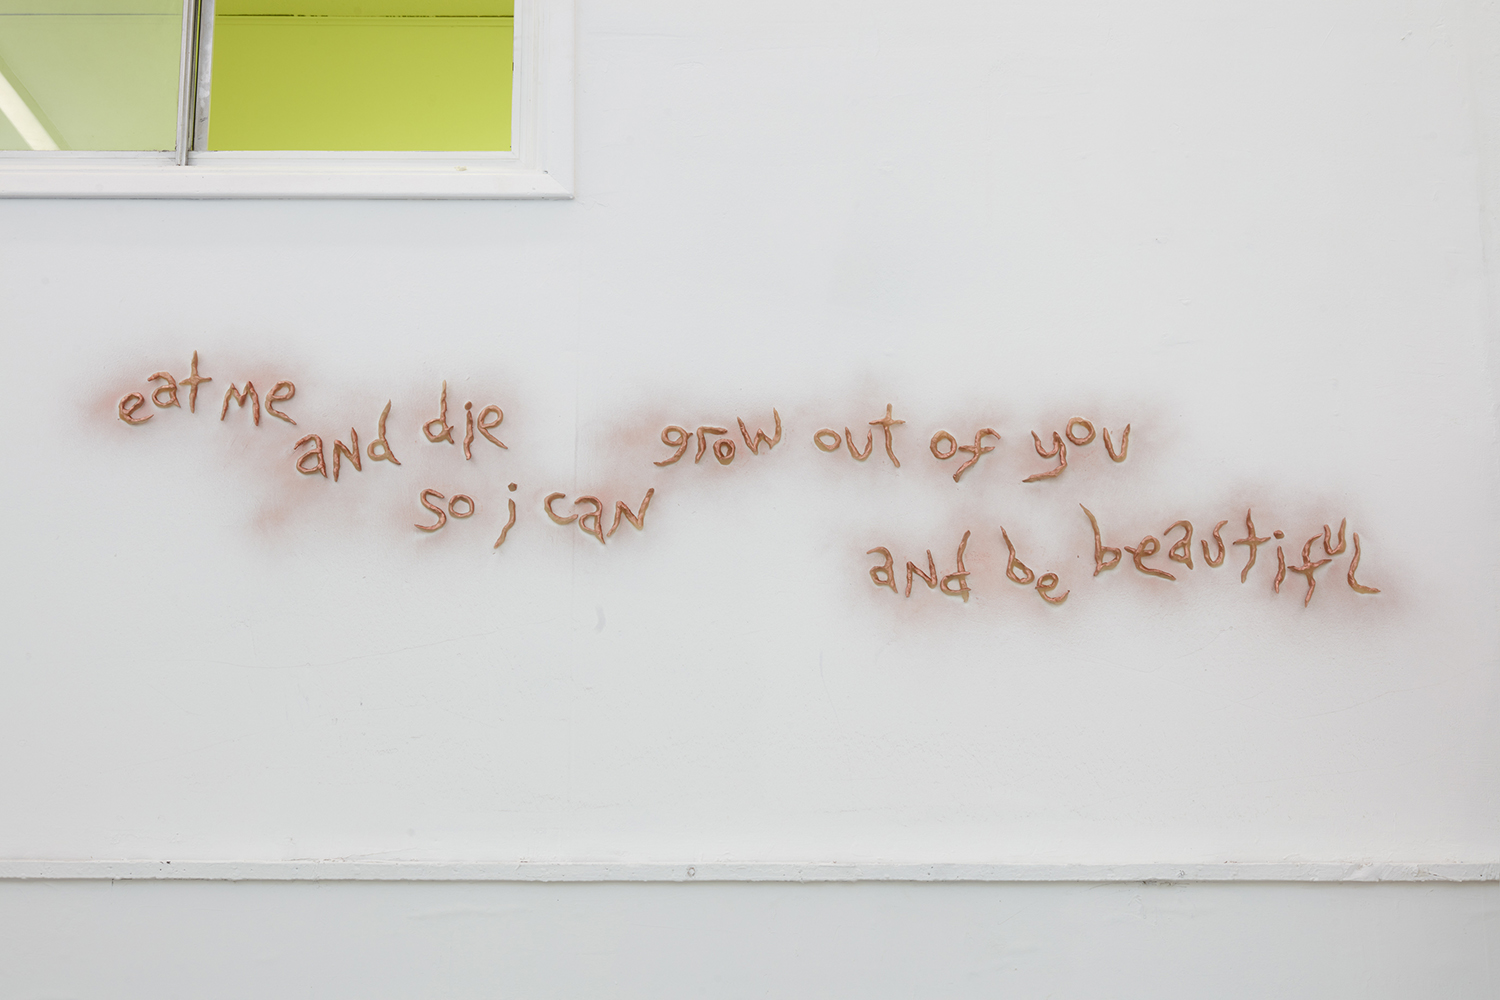 eat me
and die
so i can
grow out of you
and be beautiful